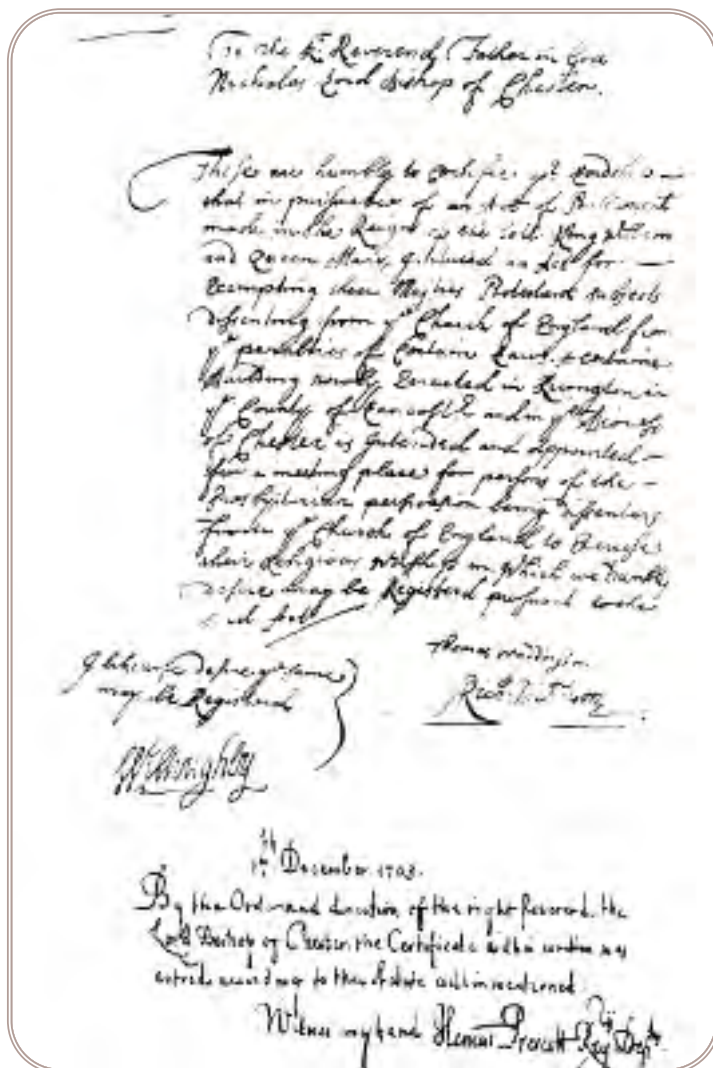 To the Rt Reverend Father in God
Nicholas Lord Bishop of Chester.
These are humbly to Certifie yr Lordship
that in pursuance of an Act of Parliament
made in the Reigne of the late King William
and Queen Mary, Intituled an Act for
Exempting their Majties Protestant subjects
dissenting from ye Church of England from
ye penalties of Certaine Laws, a certaine
Building newly Erected in Rivington in
ye County of and in ye
of Chester is Intended and appointed
for a meeting place for persons of the
Presbyterian perswasion being dissenters
from ye Church of England to Exercise
their Religious Worship in Which we humbly
desire may be Registered pursuant to the
said Act
Thomas
I likewise desire ye same
may be Registered
Willoughby
December 1703.
By the Order and direction of the right Reverend the
Lord Bishop of Chester the Certificate within written was
entred according to the within mentioned
Witnes my hand Henry Prescott Reg Depty